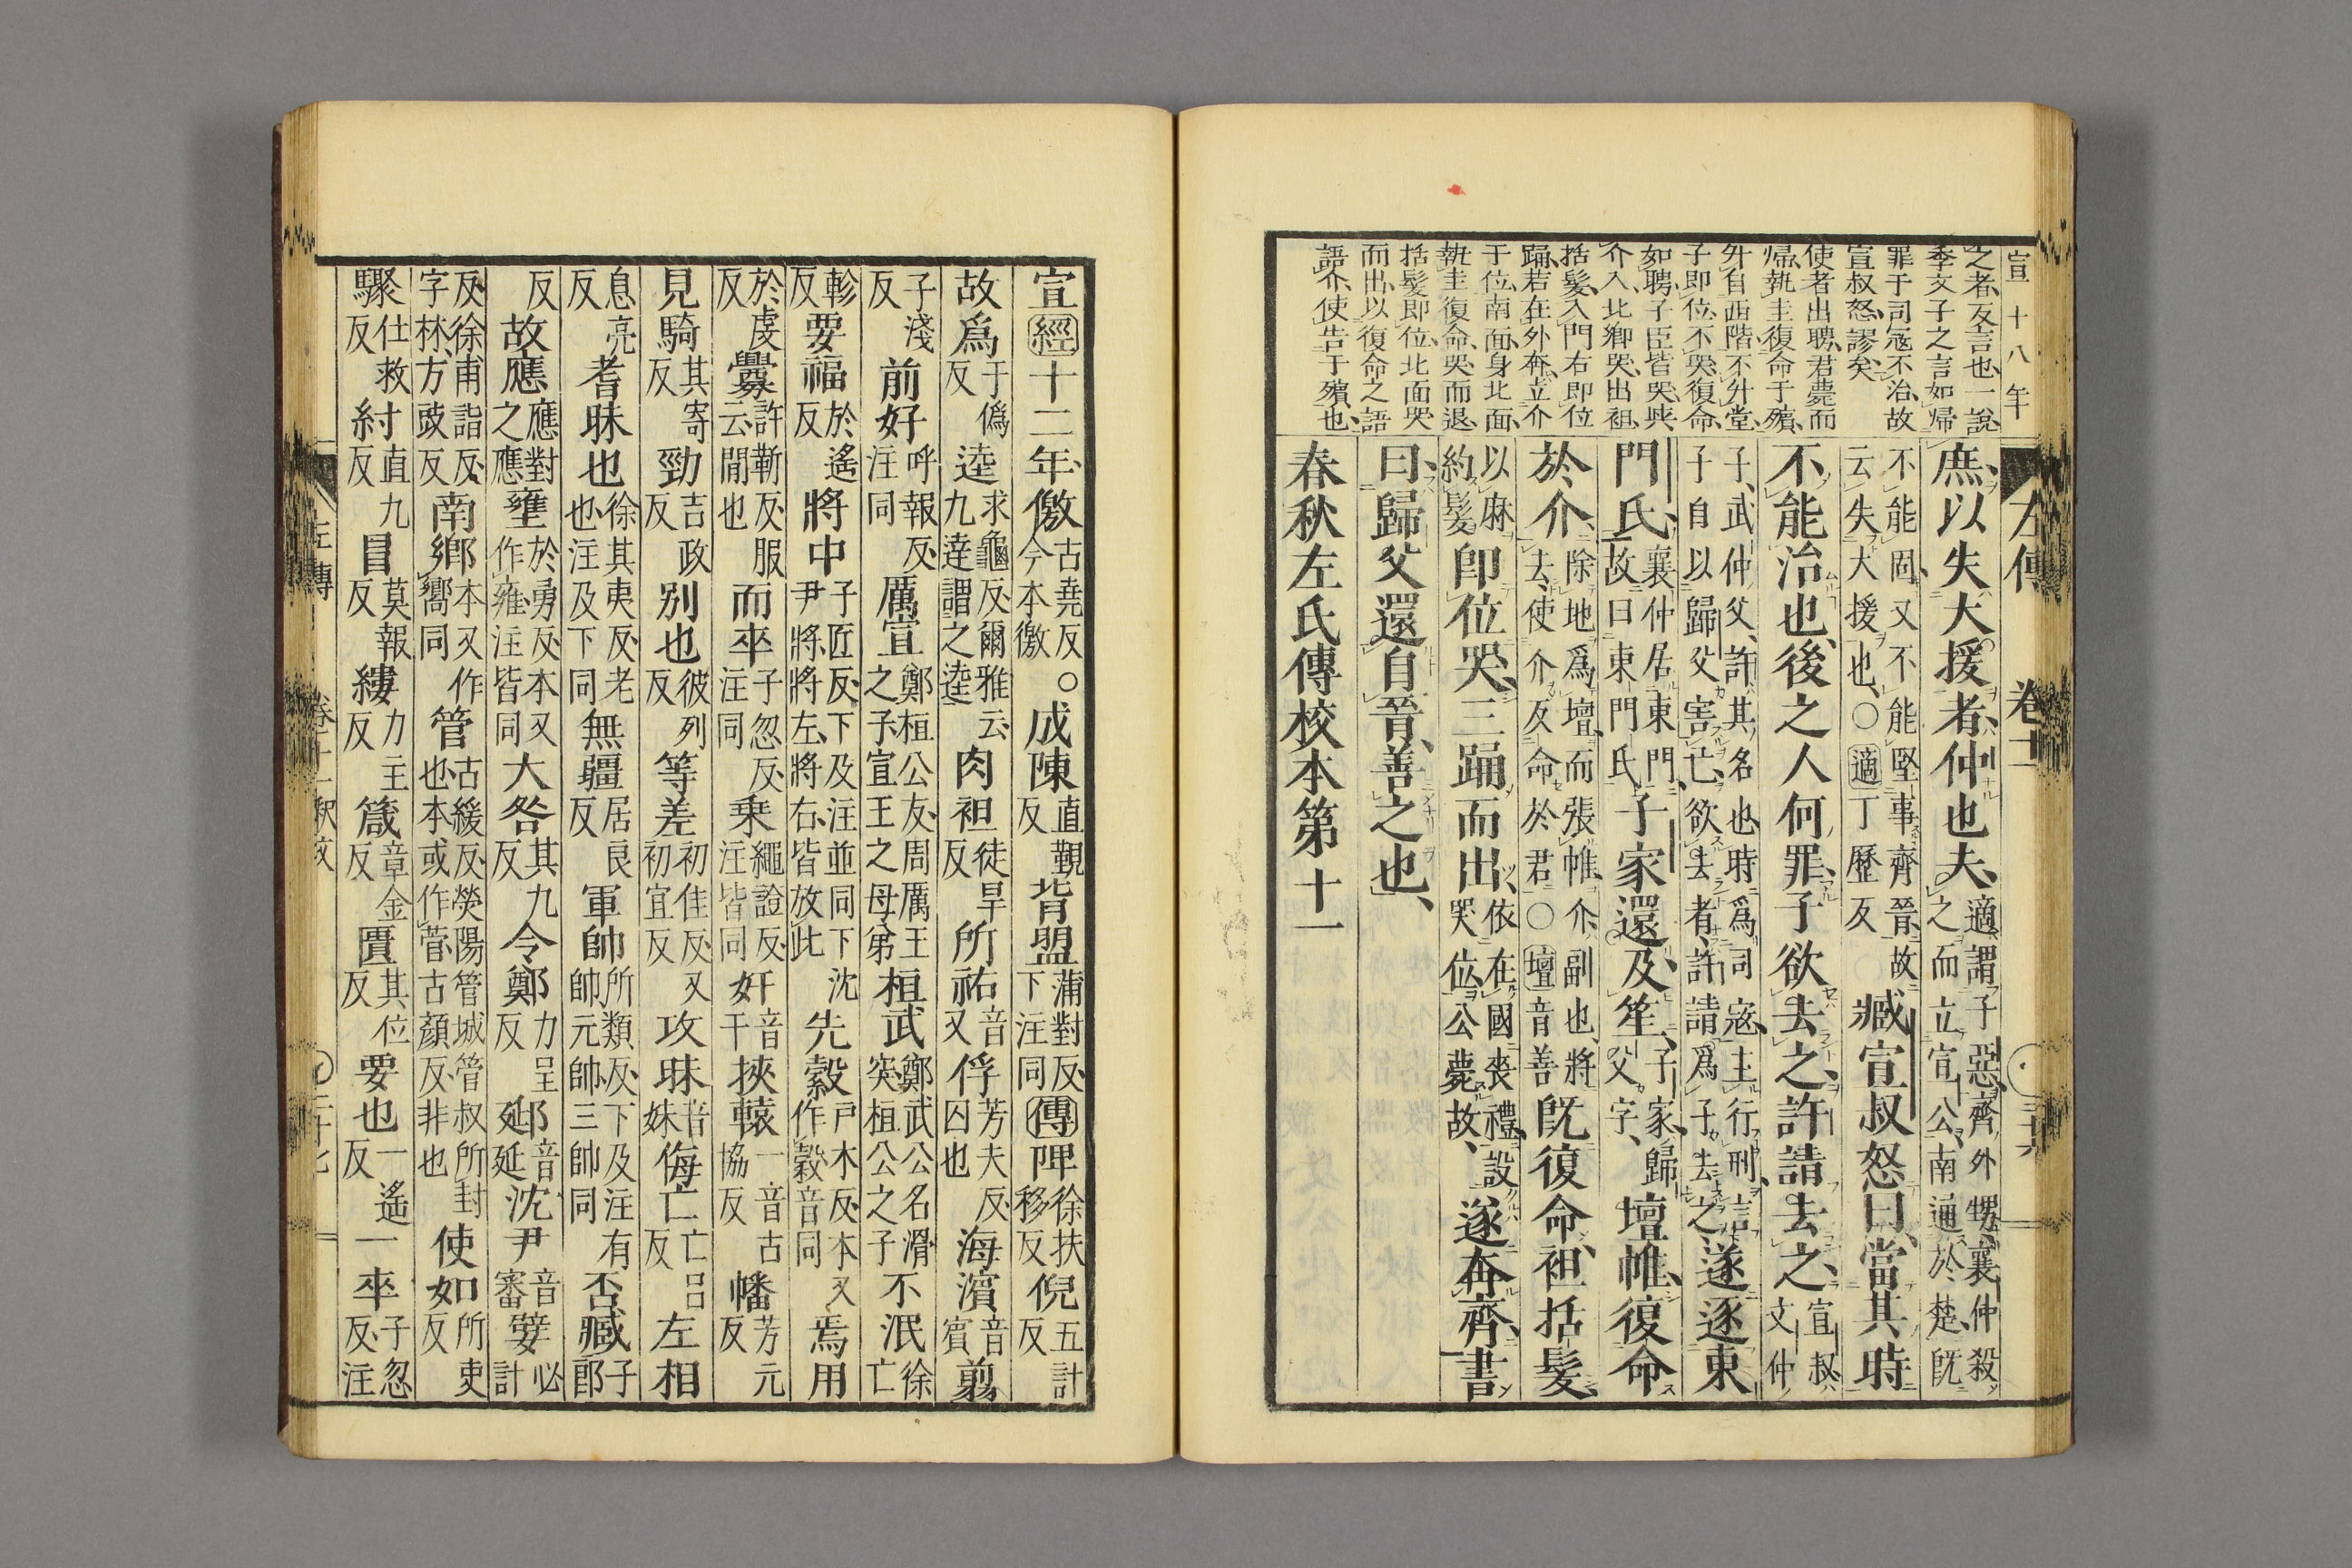 宣十八年
之者、反言也、一說、
季文子之言如帰
罪于司寇不治、故
宣叔怒、謬矣、
使者出聘、君薨而
帰、執圭復命于殯、
升自西階、不升堂、
子即位、不哭、復命、
如聘、子臣皆哭、與
介入、北郷哭、出袒、
括髮、入門右即位
踊、若在外奔、立介
于位、南面、身北面、
執圭復命、哭而退、
括髮即位、北面哭
而出、以復命之語
語介、使告于殯也、
左傳 卷十一
庶以失大援者、仲也夫、適謂子惡、齊外甥、襄仲殺之而立宣公、南通於楚、既
不能固、又不能堅事齊晉、故云失大援也、○適丁歷反臧宣叔怒曰、當其時
不能治也、後之人何罪、子欲去之、許請去之、宣叔文仲
子、武仲父、許其名也、時爲司寇、主行刑、言子自以歸父害亡、欲去者、許請爲子去之、遂逐東
門氏、襄仲居東門、故曰東門氏、子家還、及笙、子家、歸父字、壇帷、復命
於介、除地爲壇、而張帷、介、副也、將去、使介反命於君○壇音善既復命、袒括髮、
以麻約髮即位哭、三踊而出、依在國喪禮、設哭位、公薨故、遂奔齊、書
曰歸父還自晉、善之也、
春秋左氏傳校本第十一
宣經十二年、徼古堯反今本徼○成陳直覲反背盟蒲對反下注同傳陴徐扶移反倪五計反
故爲于僞反逵求龜反爾雅云九達謂之逵肉袒徒旱反所祐音又俘芳夫反囚也海濱音賓翦
子淺反前好呼報反注同厲宣鄭桓公友、周厲王之子宣王之母弟桓武鄭武公名滑突桓公之子不泯徐亡
軫反要福於遙反將中子匠反、下及注並同下尹將、將左、將右、皆放此沈先縠戶木反、本又作穀音同焉用
於虔反釁許靳反、服云閒也而卒子忽反注同乗繩證反注皆同奸音干挾轅一音古協反幡芳元反
見騎其寄反勁吉政反別也彼列反等差初佳反、又初宜反攻昧音妹侮亡亡呂反左相
息亮反耆昧也徐其夷反、老也、注及下同無疆居良反軍帥所類反、下及注有帥元帥三帥同否臧子郎
反故應應對之應壅於勇反、本又作雍、注皆同大咎其九反令鄭力呈反邲音延延沈尹音審嬖必計
反、徐甫詣反、字林、方豉反南鄉本又作嚮同管古緩反、滎陽管城管叔所封也、本或作菅、古顏反、非也使如所吏反
驟仕救反紂直九反冒莫報反縷力主反箴章金反匱其位反要也一遙反一卒子忽反、注
左傳 卷十一 釈文